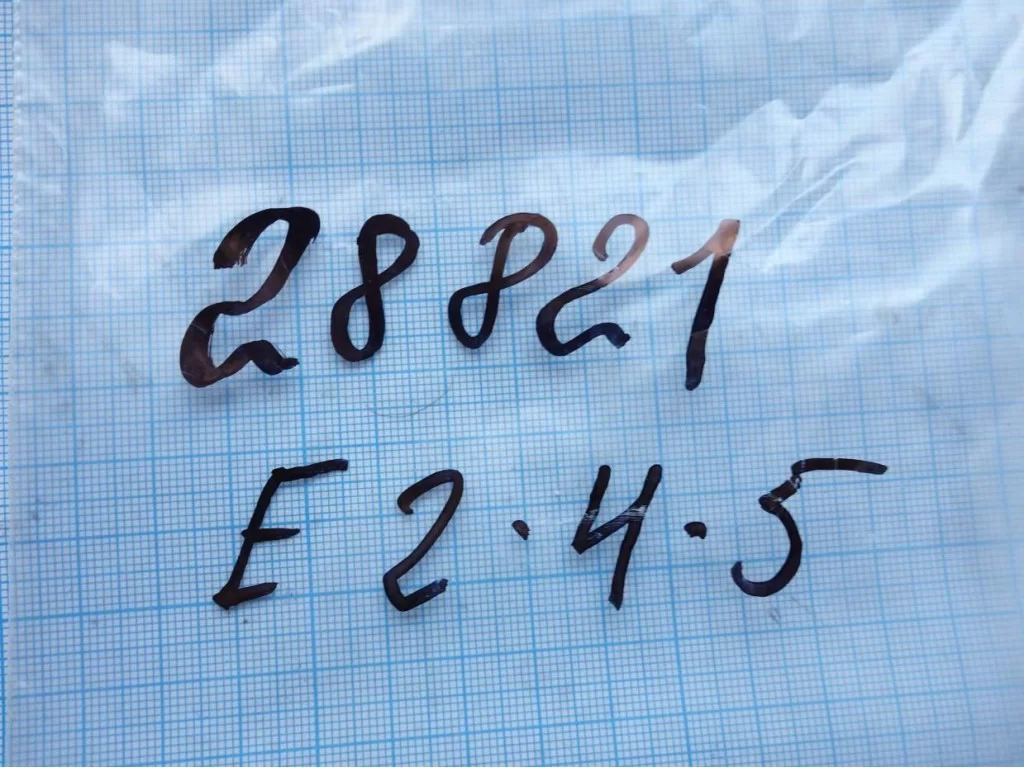 28821
E 2·4·5